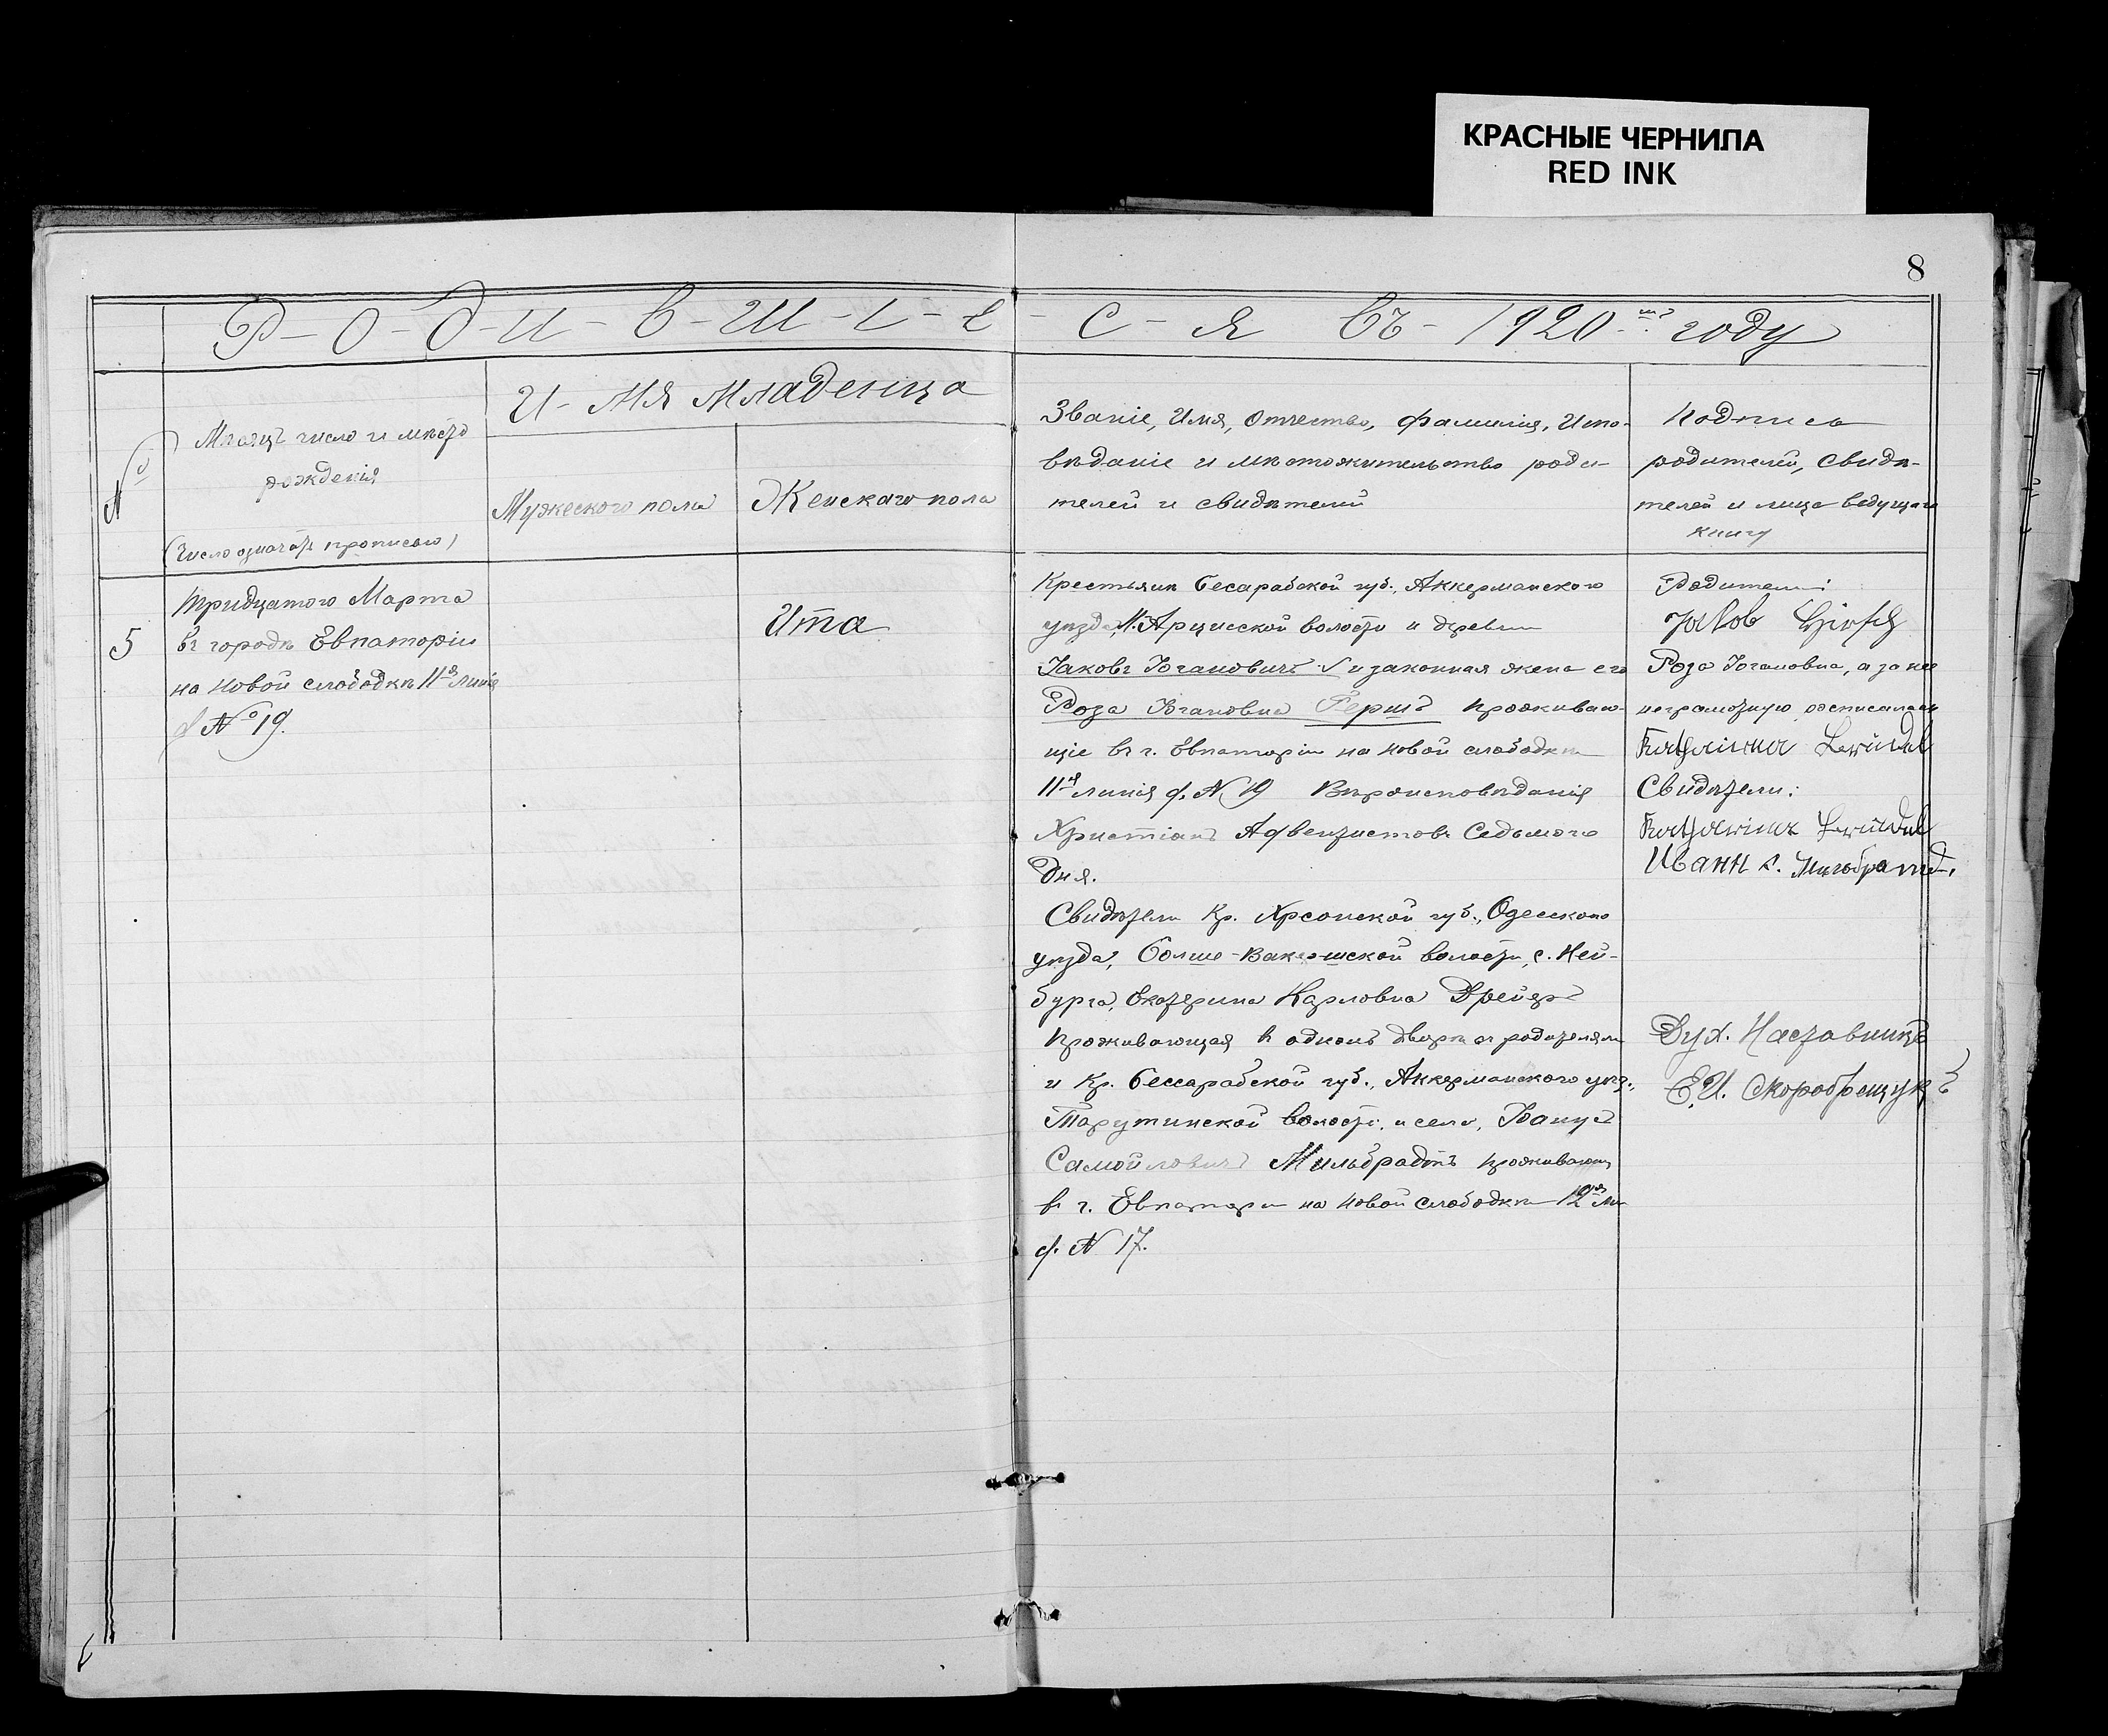 КРАСНЫЕ ЧЕРНИЛА
RED INK
8
Р-О-д-и-в-ш-і-е-с-я въ 1920-мъ году
№
Мѣсяцъ число и мѣсто
рожденія
(Число означать прописью)
И-мя младенца
Мужескаго пола
Женскаго пола
Званіе, Имя, Отчество, Фамилія, Испо-
вѣданіе и мѣстожительство роди-
телей и свидѣтелей
Подпись
родителей, свидѣ-
телей и лица ведущаго
книгу
5
тридцатого Марта
въ городѣ Евпаторіи
на новой слободкѣ 11я линія
д № 19.
Ита
Крестьяне Бесарабской губ., Аккерманского
уѣзда, М. Арцисской волости и деревни
Іаковъ Іогановичъ √ и законная жена его
Роза Іогановна Гершъ проживаю-
щіе въ г. Евпаторіи на новой слободкѣ
11я линія д. № 19 Вѣроисповѣданія
Христіанъ Адвентистовъ Седьмого
дня.
Свидѣтели Кр. Херсонской губ., Одесского
уѣзда, волости, с. Ней-
бурга, Екатерина Карловна Дрейеръ
проживающая в одномъ дворѣ съ родителями
и Кр. Бессарабской губ., Аккерманского уѣз.,
Тарутинской волости, и села,
Самойловичъ Мильбратъ проживающ
въ г. Евпаторіи на новой слободкѣ 12я ли
д. № 17.
Родители:
Jakob Hirsch
Роза Іогановна, а за нее
неграмотную росписалась
Katharina
Свидѣтели:
Katharina
Иванн С. Мильбрат.
Дух. Наставникъ
Е.И. Скоробрещукъ